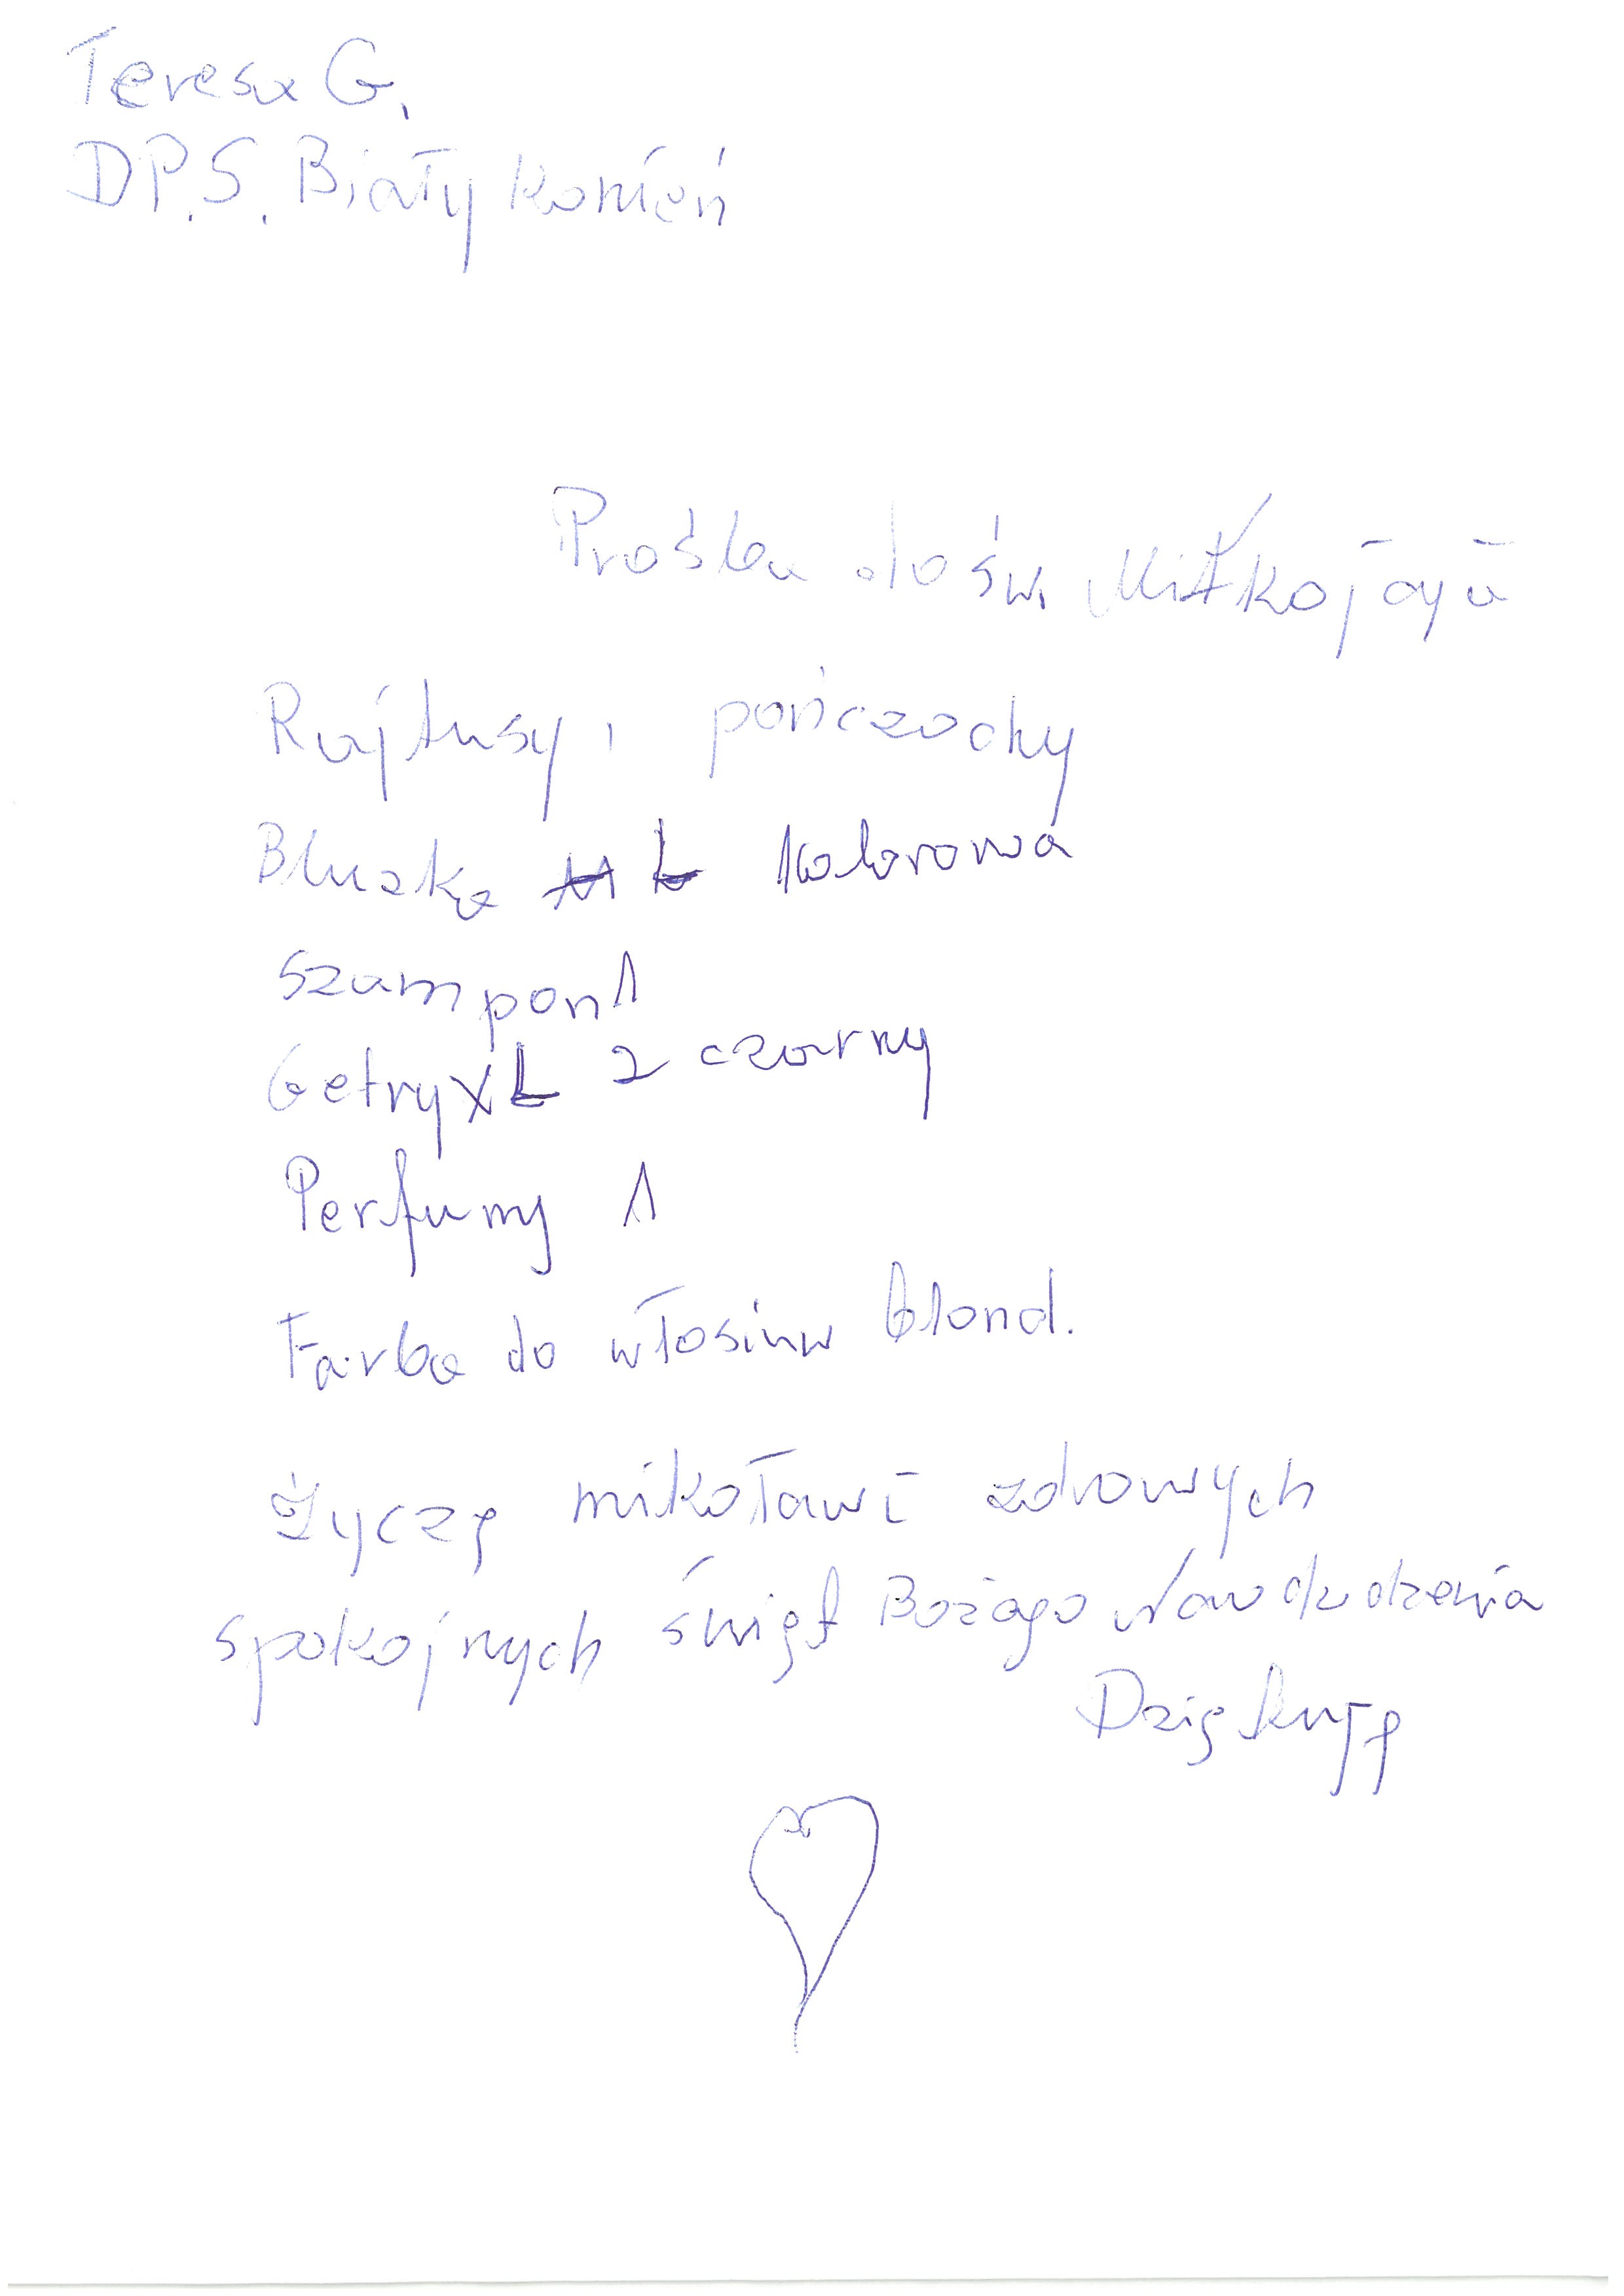 Teresa G.
DP.S. Biały Kamień
Prośba do św.
Rajtusy i pończochy
Bluzka M L kolorowa
Szampon 1
Getry XL 2 czarny
Perfumy 1
Farba do włosinw blond.
Życzę mikoławi zdrowych
spokojnych świąt Bożego
Dziękuję